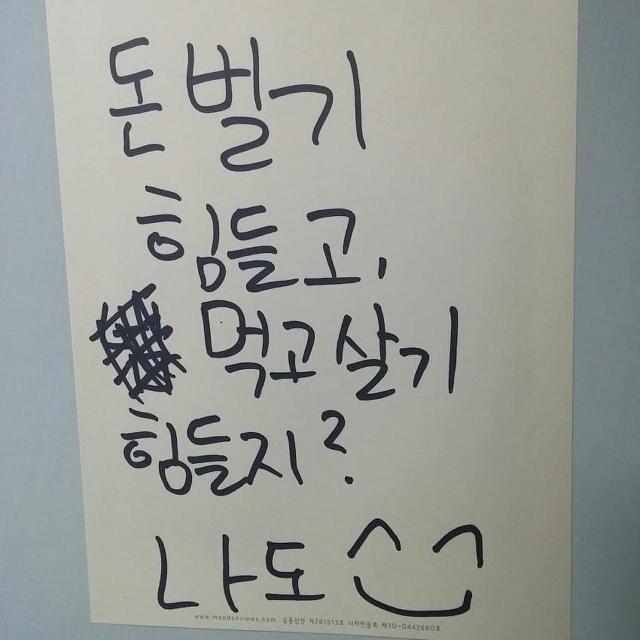 돈벌기
힘들고,
먹고살기
힘들지?
나도
www.moodsnviews.com 실용신안 제261513호 디자인등록 제30-0442660호